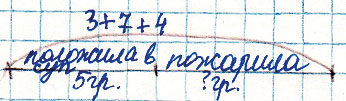 3+7+4
положила в пожарила
суп
5гр. ?гр.